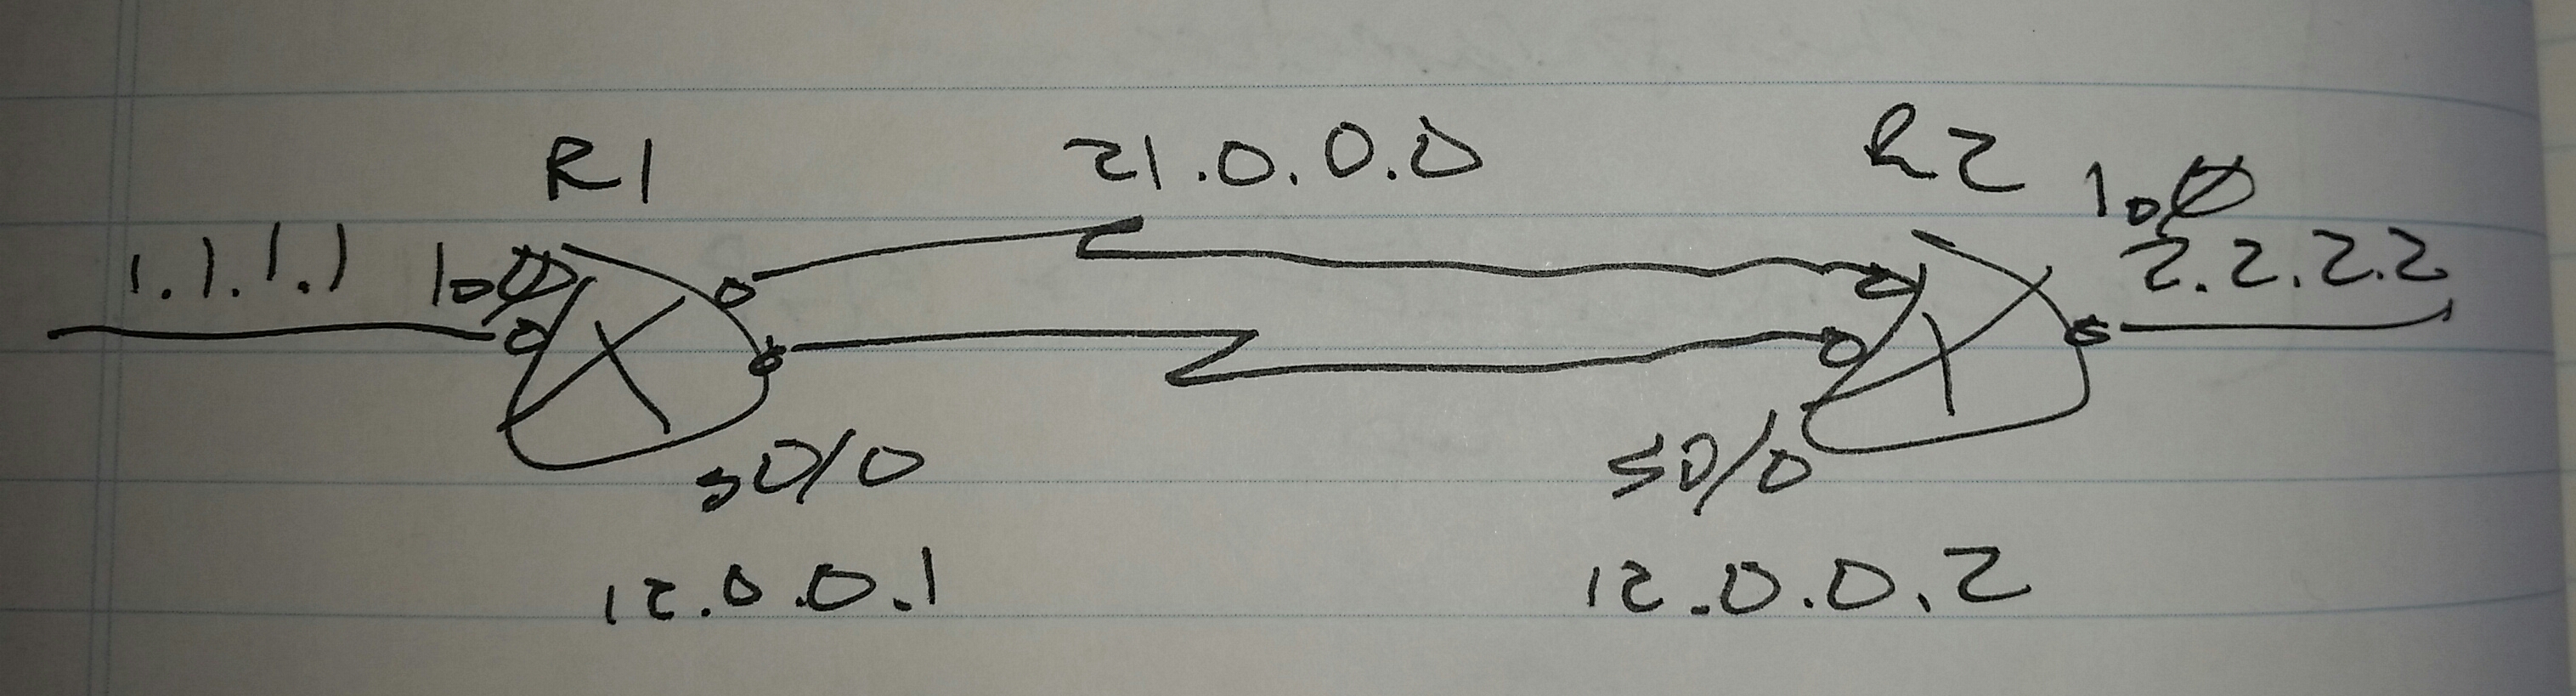 R1 21.0.0.0 R2
lo0
1.1.1.1 lo0 2.2.2.2
s0/0 s0/0
12.0.0.1 12.0.0.2